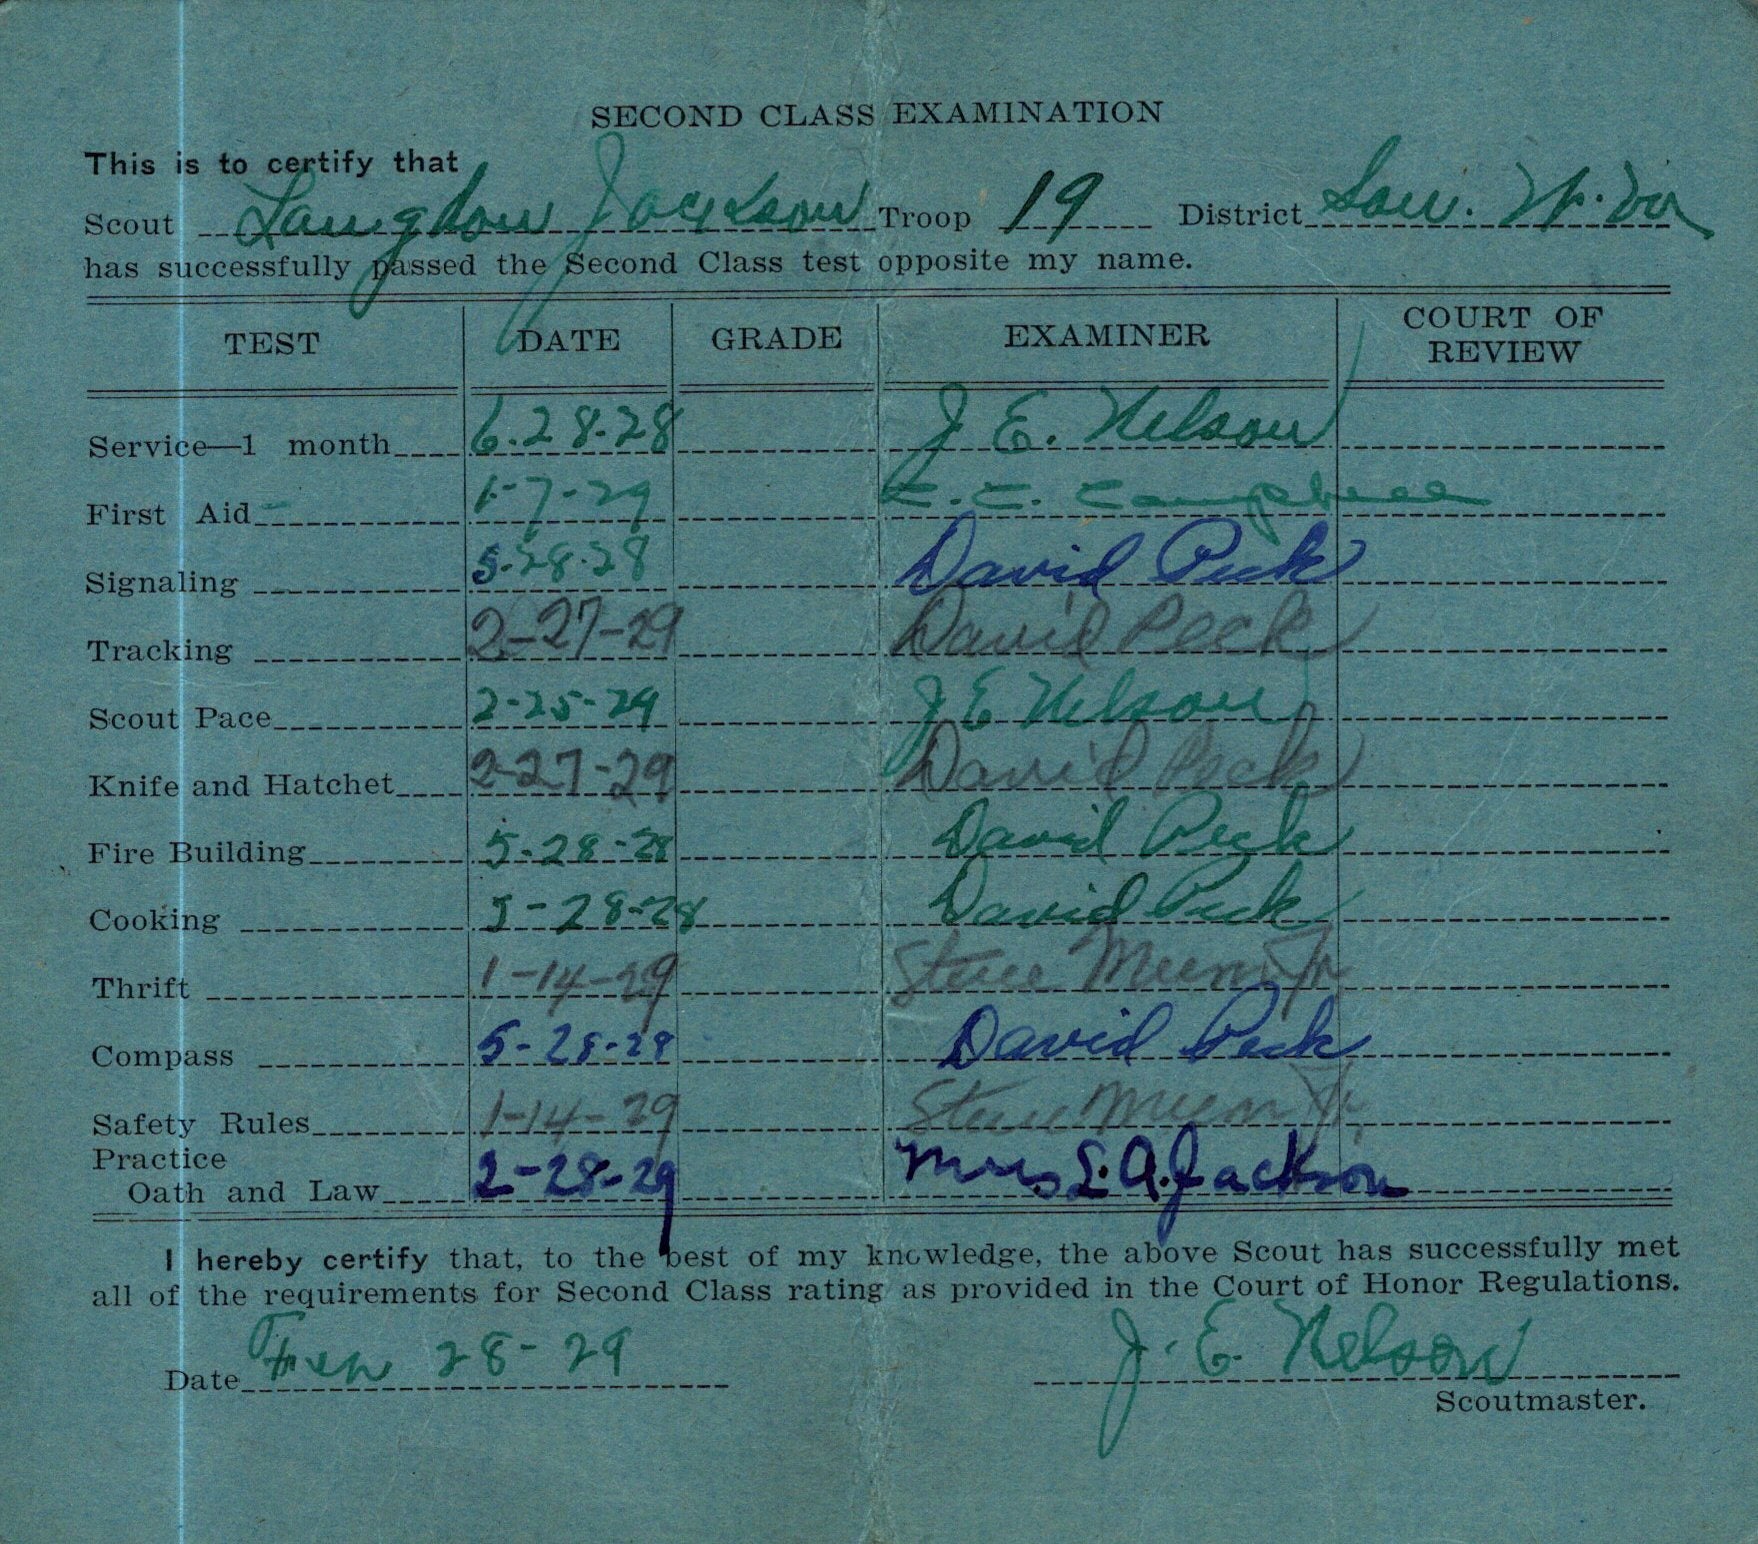 SECOND CLASS EXAMINATION
This is to certify that
Scout Langdon Jackson Troop 19 District Sou. W. Va
has successfully passed the Second Class test opposite my name.
TEST DATE GRADE EXAMINER COURT OF REVIEW
Service—1 month 6-28-28 J E. Nelson
First Aid 1-7-29 Campbell
Signaling 5-28-28 David Peck
Tracking 2-27-29 David Peck
Scout Pace 2-25-29 J E Nelson
Knife and Hatchet 2-27-29 David Peck
Fire Building 5-28-28 David Peck
Cooking 5-28-28 David Peck
Thrift 1-14-29 Steve Jr.
Compass 5-28-28 David Peck
Safety Rules 1-14-29 Steve Jr.
Practice
Oath and Law 2-28-29 Mrs L. A. Jackson
I hereby certify that, to the best of my knowledge, the above Scout has successfully met
all of the requirements for Second Class rating as provided in the Court of Honor Regulations.
Date 28-29 J. E. Nelson
Scoutmaster.